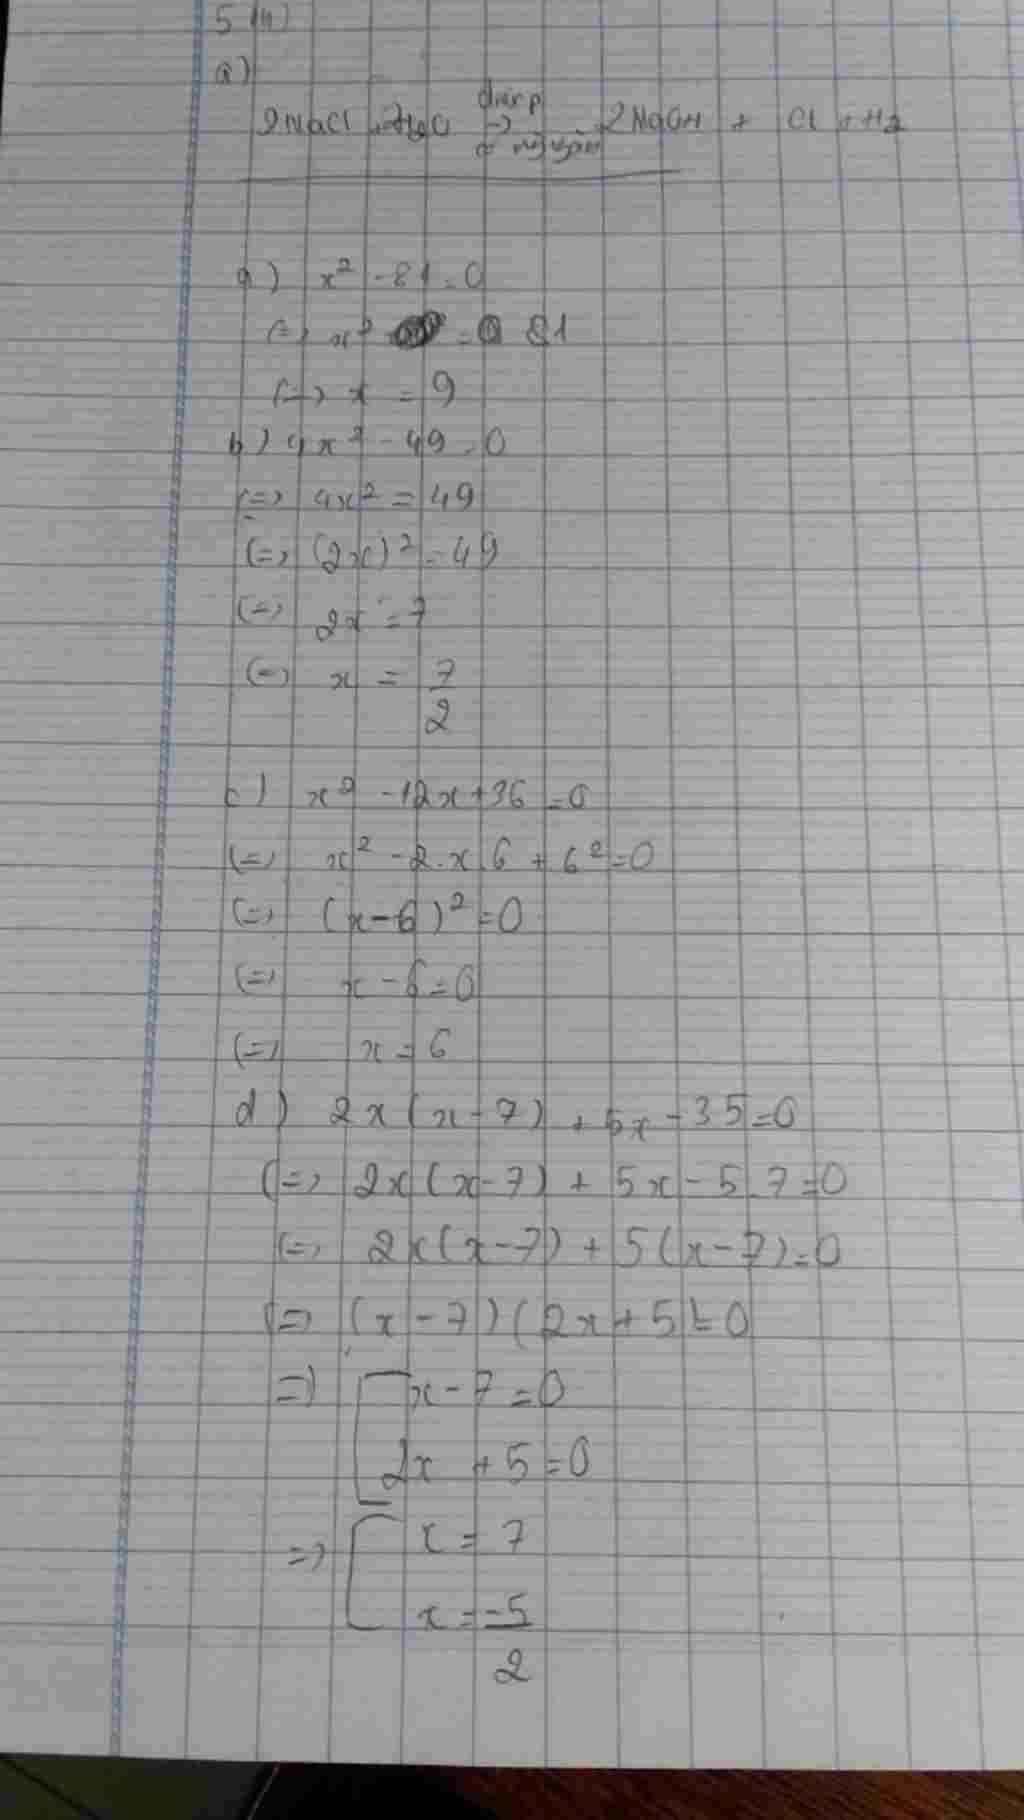 5
a)
2NaCl + 2H₂O đmnp → 2NaOH + Cl + H₂
a) x² - 81 = 0
(=) x² = 81
(=) x = 9
b) 4x² - 49 = 0
(=) 4x² = 49
(=) (2x)² = 49
(=) 2x = 7
(=) x = 7/2
c) x² - 12x + 36 = 0
(=) x² - 2.x.6 + 6² = 0
(=) (x - 6)² = 0
(=) x - 6 = 0
(=) x = 6
d) 2x(x - 7) + 5x - 35 = 0
(=) 2x(x - 7) + 5x - 5.7 = 0
(=) 2x(x - 7) + 5(x - 7) = 0
(=) (x - 7)(2x + 5) = 0
=) [ x - 7 = 0
2x + 5 = 0
=) [ x = 7
x = -5/2